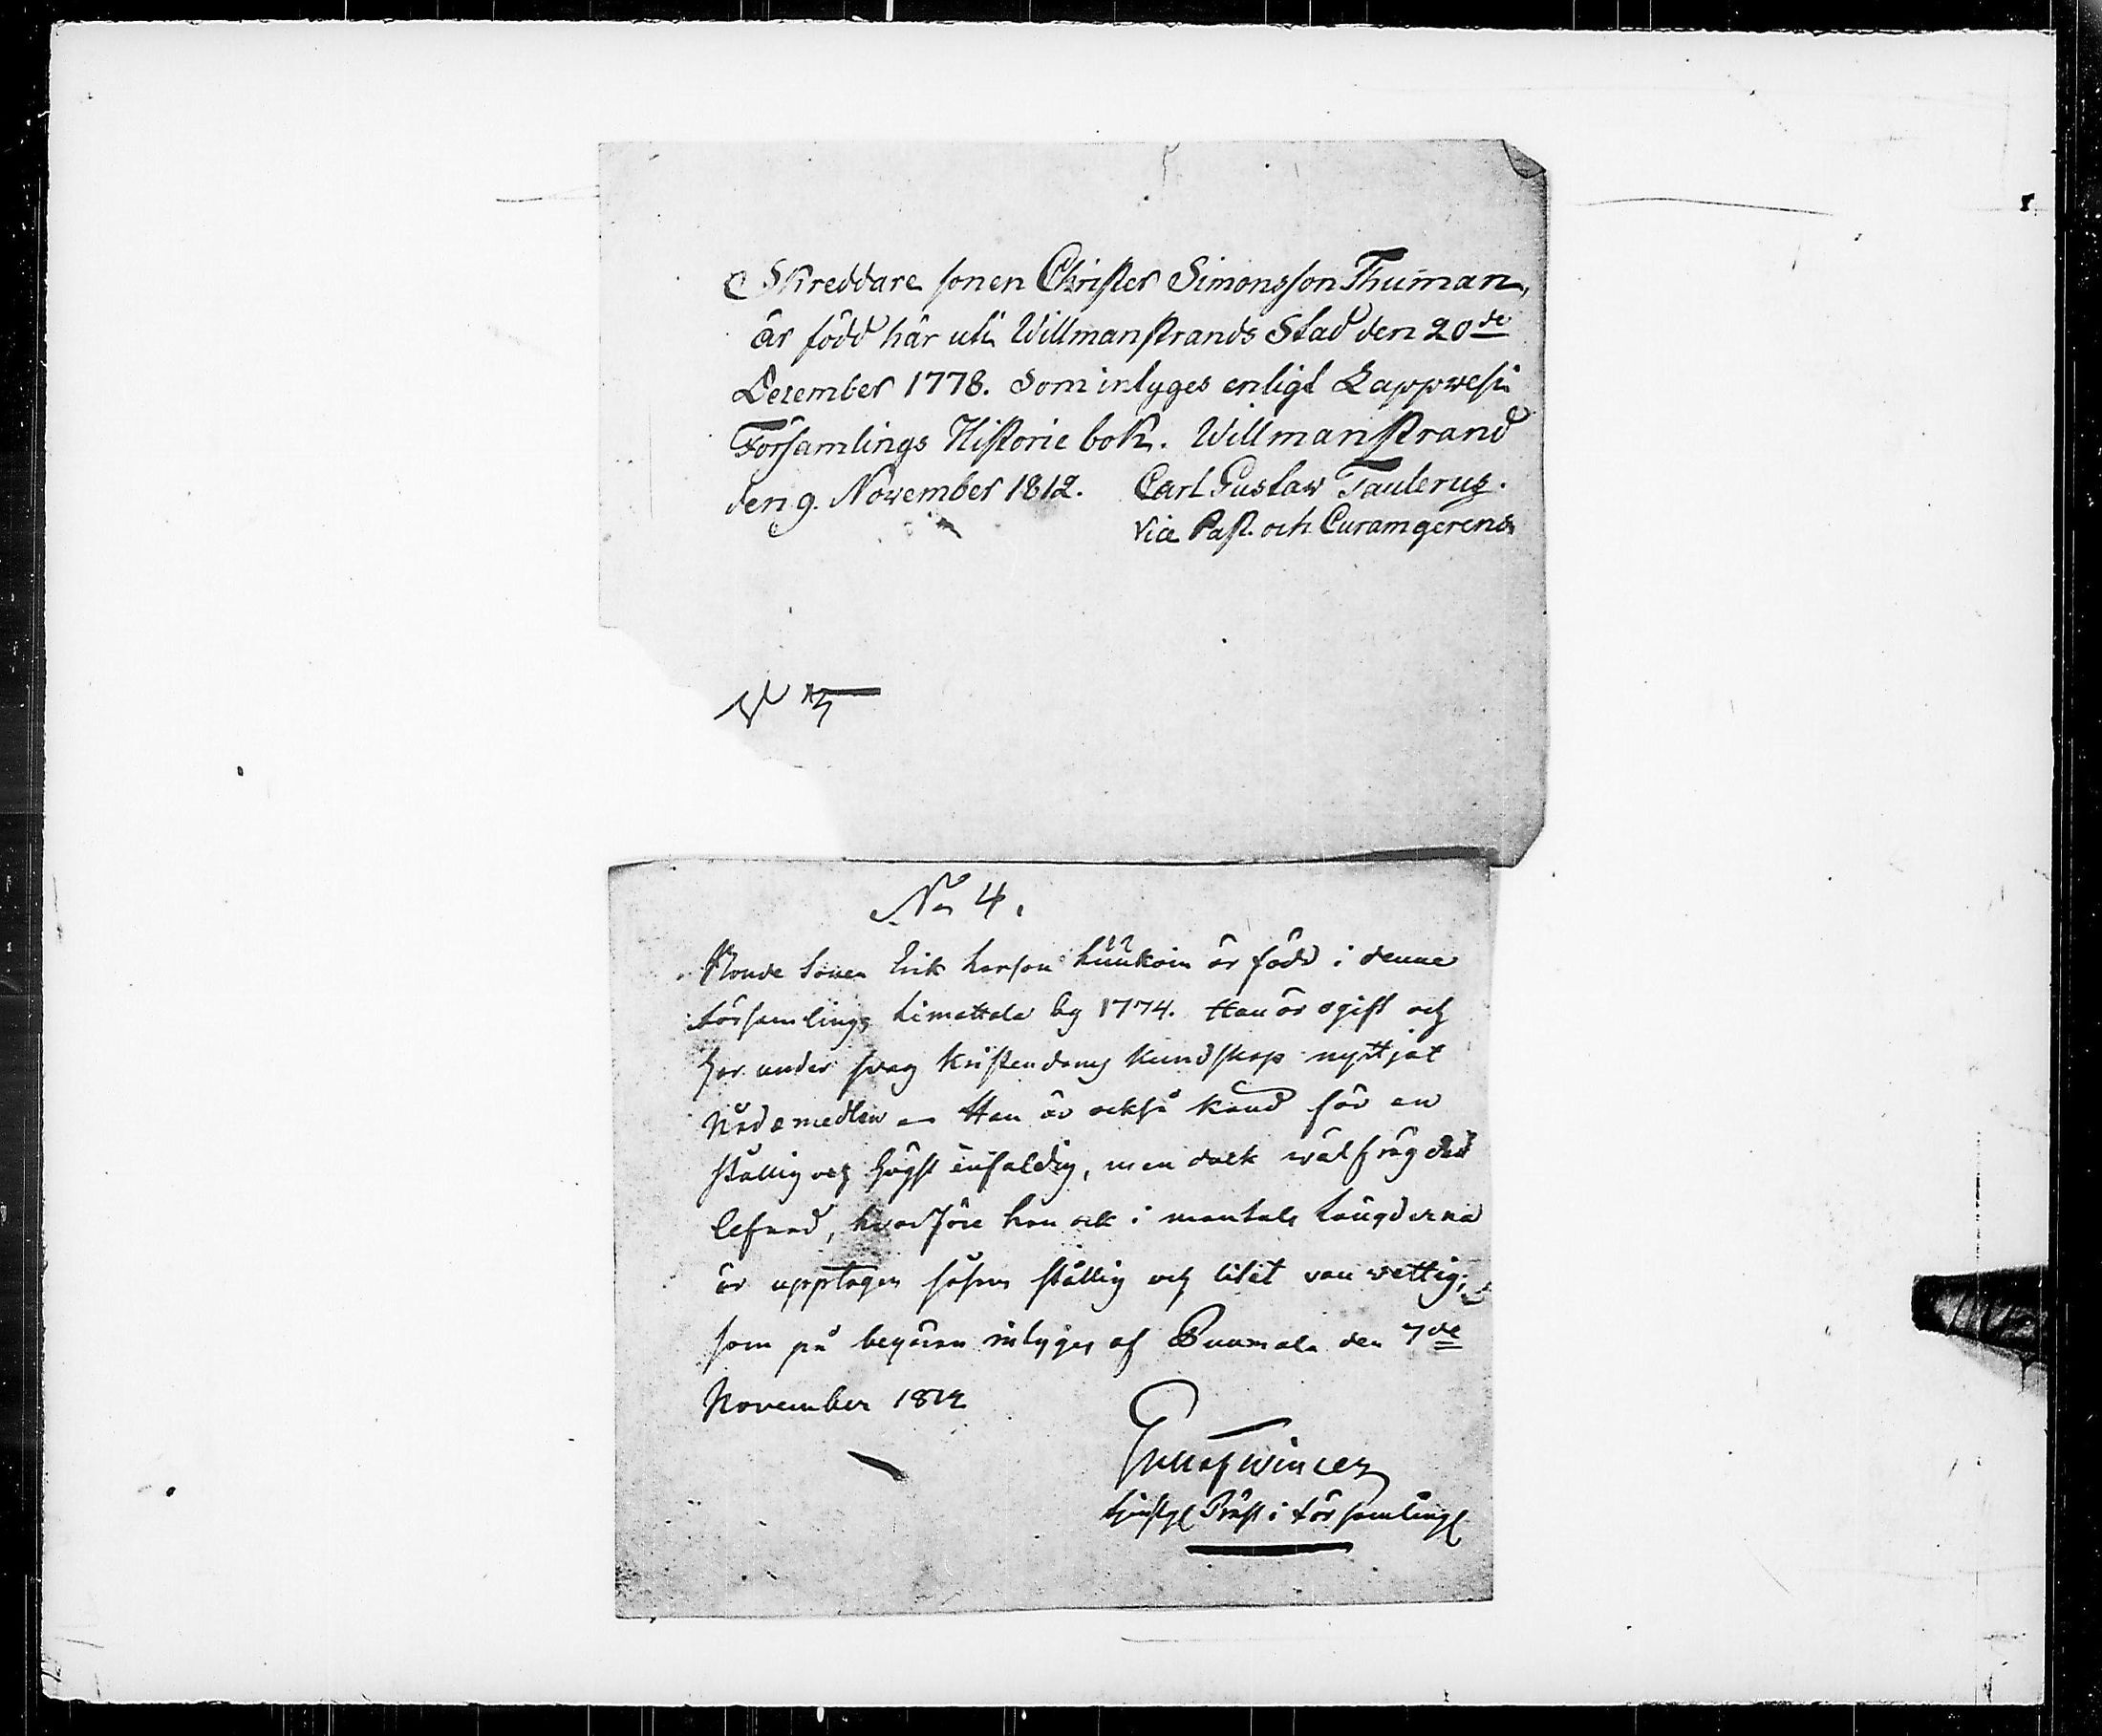 Skreddare sonen Christer Simonsson Thuman,
är född här uti Willmanstrands Stad den 20de
December 1778. Som intyges enligt Lappvesi
Församlings Historie bok. Willmanstrand
den 9. November 1812. Carl Gustaw Taulerus.
Vice Past. och Curam gerens
No 4.
Bonde Sonen Erik Larson är född i denne
Församlings Limattala by 1774. Han är ogift och
har under svag Kristendoms Kundskap nyttjat
Nådemedlen – Han är också känd för en
stållig och högst enfaldig, men dock wälfrägdad
lefnad, hvarföre han ock i mantals Längderna
är upptagen såsom stållig och litet van wettig;
som på begäran intyges af Puumala den 7de
November 1812
Gustaf Winter
tjenstg. Präst i Församling.